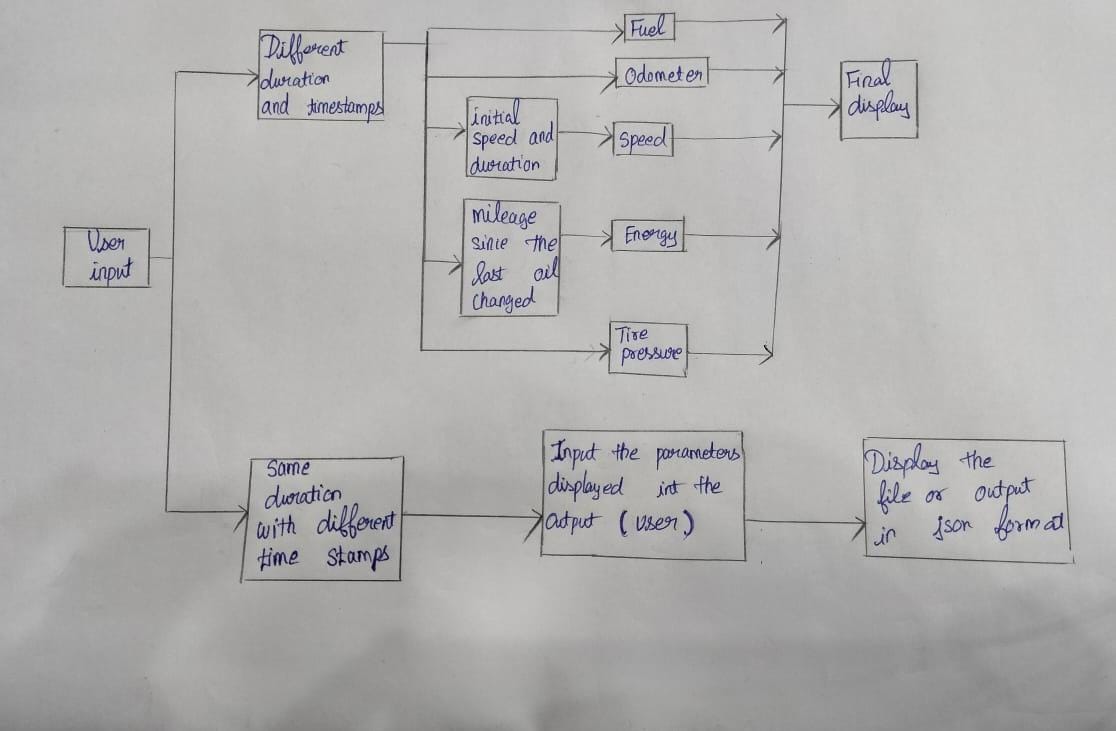 User
input
Different
duration
and timestamps
Fuel
Odometer
initial
speed and
duration
Speed
mileage
since the
last oil
changed
Energy
Tire
pressure
Final
display
Same
duration
with different
time stamps
Input the parameters
displayed int the
output (user)
Display the
file or output
in json format